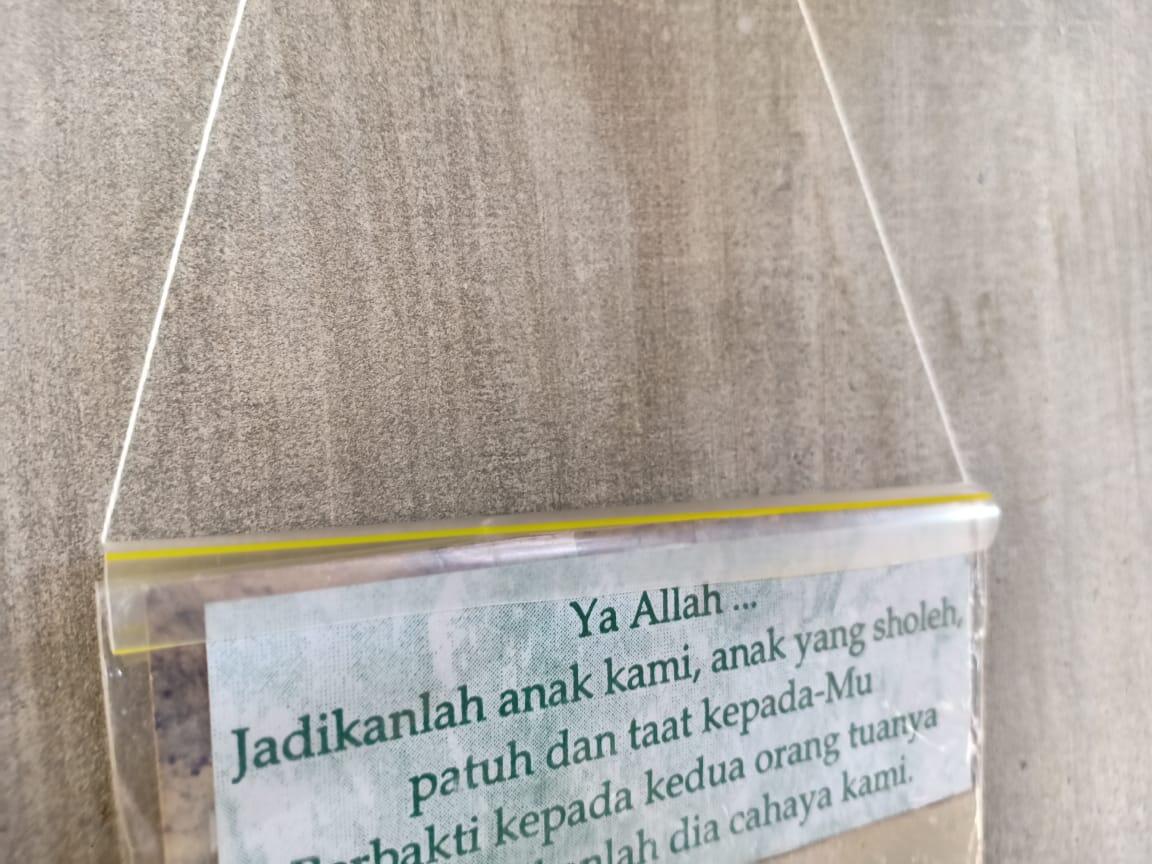 Ya Allah ...
Jadikanlah anak kami, anak yang sholeh,
patuh dan taat kepada-Mu
Berbakti kepada kedua orang tuanya
dia cahaya kami.